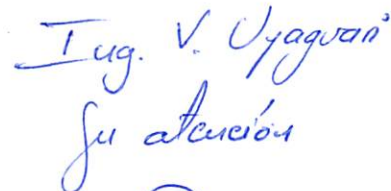 Ing. V. Uyaguari
Su atención